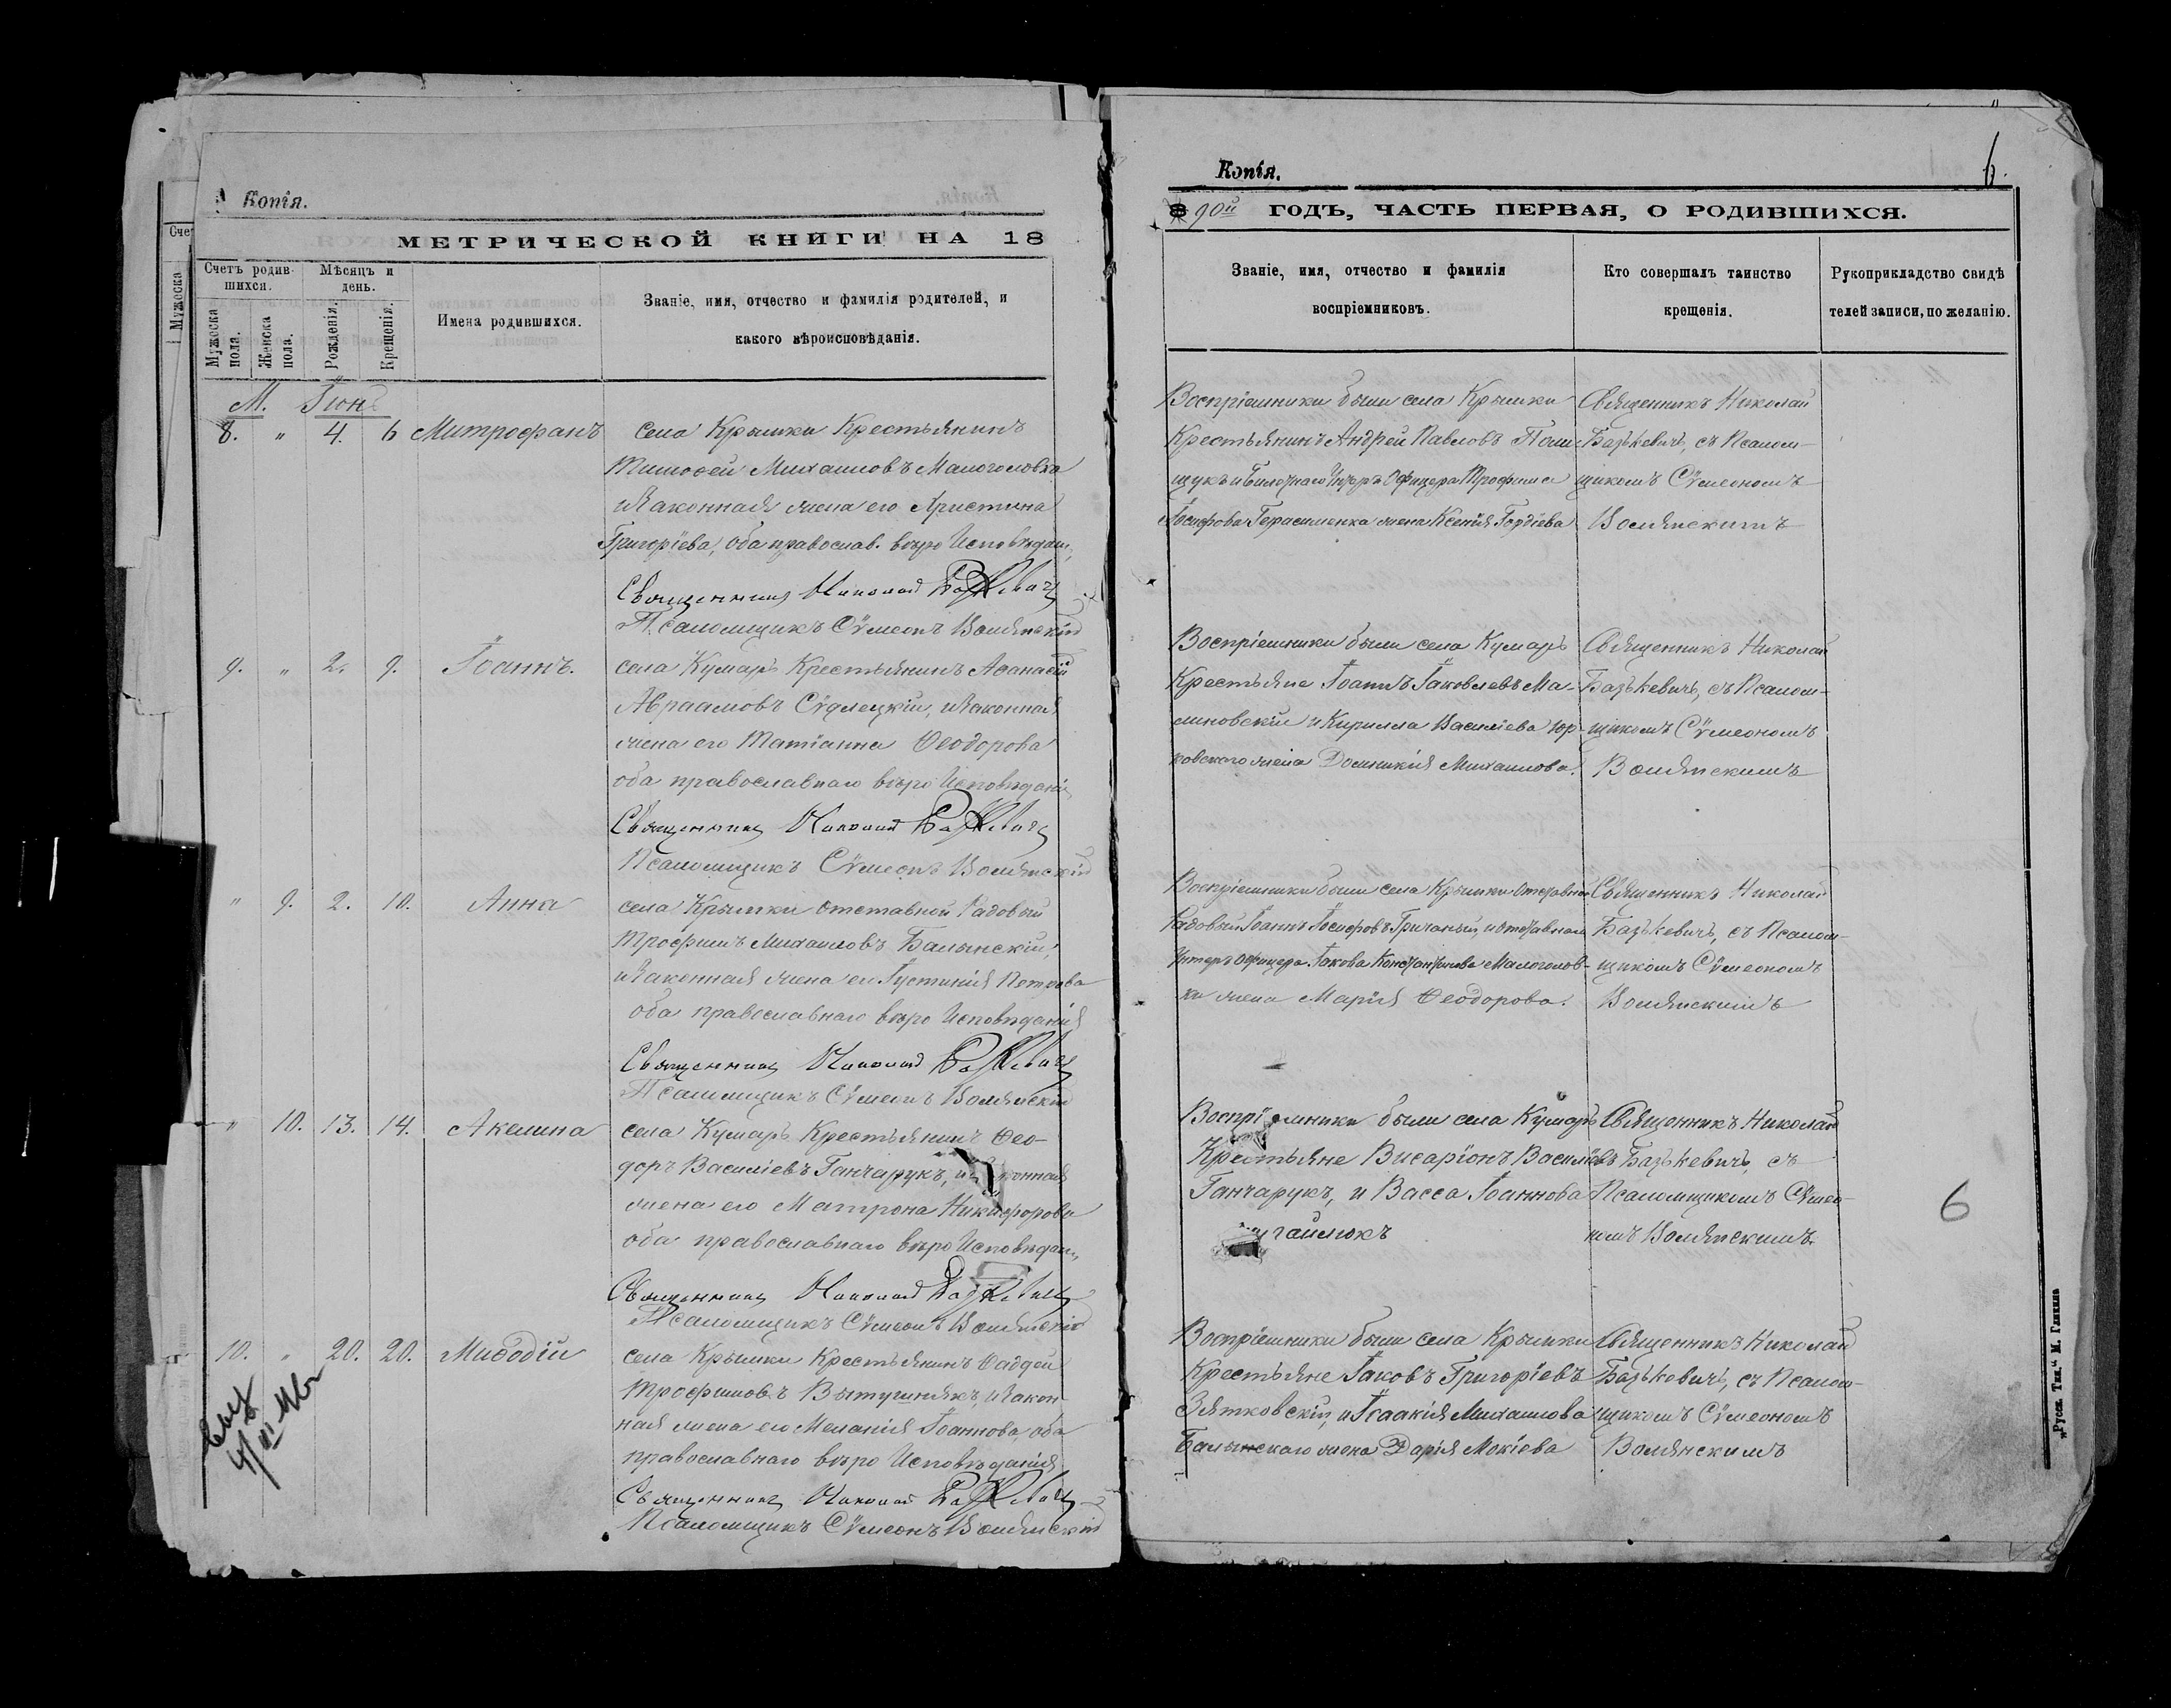 Копія.
МЕТРИЧЕСКОЙ КНИГИ НА 18
Счетъ родив-
шихся.
Мѣсяцъ и
день.
Мужеска
пола.
Женска
пола.
Рожденія.
Крещенія.
Имена родившихся.
Званіе, имя, отчество и фамилія родителей, и
какого вѣроисповѣданія.
М. Іюнь
8. " 4. 6 Митрофанъ
села Крымки Крестьянинъ
Тимоѳей Михаиловъ Малоголовка
и законная жена его Христина
Григоріева, оба православ. вѣро Исповѣдан,
Священникъ Николай Базькевичъ
Псаломщикъ Сѵмеонъ Волянскій
9. " 2. 9. Іоаннъ.
села Кумаръ Крестьянинъ Аѳанасій
Авраамовъ Сѣдлецкій, и законная
жена его Татіанна Ѳеодорова
оба православнаго вѣро Исповѣданія
Священникъ Николай Базькевичъ
Псаломщикъ Сѵмеонъ Волянскій
" 9. 2. 10. Анна
села Крымки отставной Рядовый
Трофимъ Михаиловъ Балынскій,
и законная жена его Іустинія Петрова
оба православнаго вѣро Исповѣданія
Священникъ Николай Базькевичъ
Псаломщикъ Сѵмеонъ Волянскій
" 10. 13. 14. Акелина
села Кумаръ Крестьянинъ Ѳео-
доръ Василіевъ Ганчарукъ, и законная
жена его Матрона Никифорова
оба православнаго вѣро Исповѣдан,
Священникъ Николай Базькевичъ
Псаломщикъ Сѵмеонъ Волянскій
10. " 20. 20. Миѳодій
села Крымки Крестьянинъ Ѳаддей
Трофимовъ Вытушнякъ, и закон
ная жена его Меланія Іоаннова, оба
православнаго вѣро Исповѣданія
Священникъ Николай Базькевичъ
Псаломщикъ Сѵмеонъ Волянскій
Копія.
6.
90й ГОДЪ, ЧАСТЬ ПЕРВАЯ, О РОДИВШИХСЯ.
Званіе, имя, отчество и фамилія
воспріемниковъ.
Кто совершалъ таинство
крещенія.
Рукоприкладство свидѣ
телей записи, по желанію.
Воспріемники были села Крымки
Крестьянинъ Андрей Павловъ Поли
щукъ и Билетнаго Унтеръ Офицера Трофима
Іосифова Герасименка жена Ксенія Гордіева
Священникъ Николай
Базькевичъ, съ Псалом-
щикомъ Сѵмеономъ
Волянскимъ
Воспріемники были села Кумаръ
Крестьяне Іоаннъ Іаковлевъ Ма-
линовскій и Кирилла Василіева Юр-
ковского жена Домникія Михаилова.
Священникъ Николай
Базькевичъ, съ Псалом-
щикомъ Сѵмеономъ
Волянскимъ
Воспріемники были села Крымки Отставной
Рядовый Іоаннъ Іосифовъ Гричаный, и отставнаго
Унтеръ Офицера Іакова Константинова Малоголов-
ки жена Марія Ѳеодорова.
Священникъ Николай
Базькевичъ, съ Псалом-
щикомъ Сѵмеономъ
Волянскимъ
Воспріемники были села Кумаръ
Крестьяне Висаріонъ Василіевъ
Ганчарукъ, и Васса Іоаннова
Священникъ Николай
Базькевичъ, съ
Псаломщикомъ Сѵмео-
номъ Волянскимъ.
6
Воспріемники были села Крымки
Крестьяне Іаковъ Григоріевъ
Зятковскій, и Ісаакія Михаилова
Балынскаго жена Дарія Мокіева
Священникъ Николай
Базькевичъ, съ Псалом-
щикомъ Сѵмеономъ
Волянскимъ